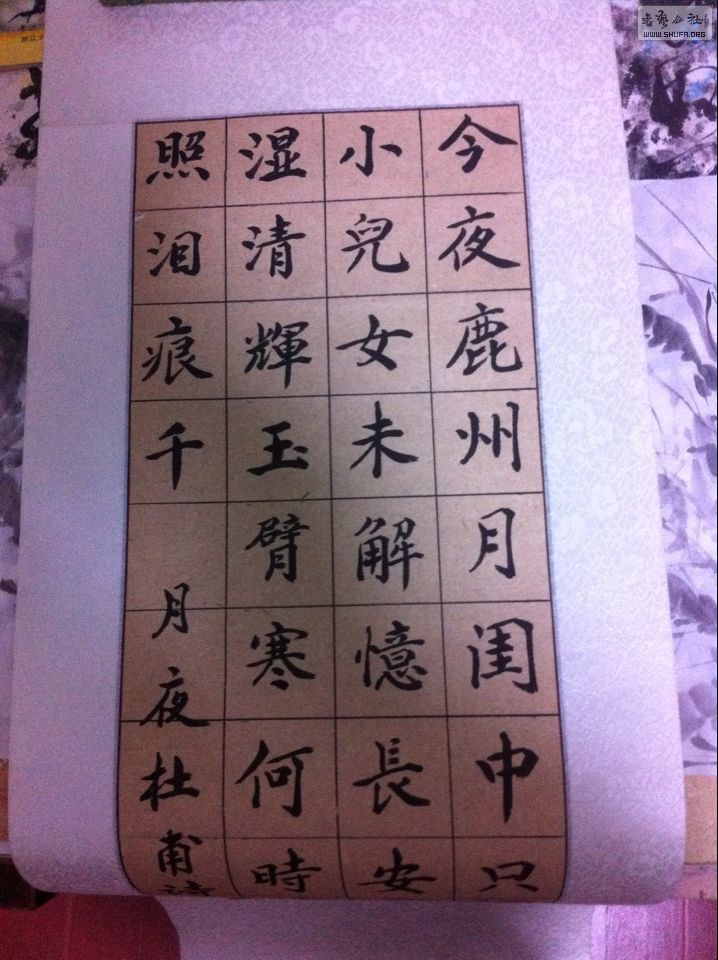 今夜鹿州月闺中只
小兒女未解憶長安
湿清輝玉臂寒何時
照泪痕千
月夜杜甫
書藝公社
WWW.SHUFA.ORG